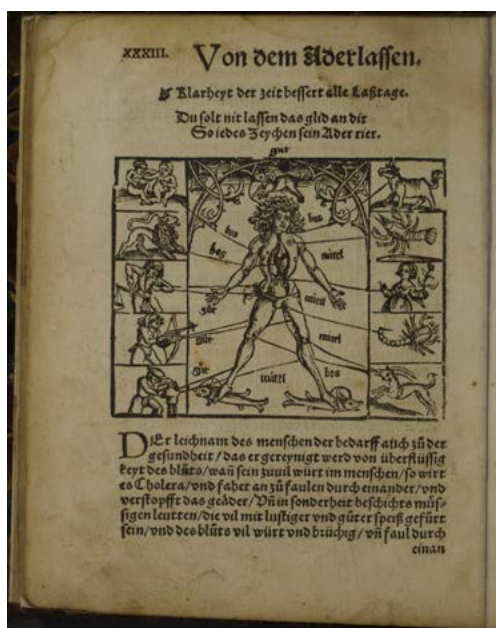 XXXIII. Von dem Aderlassen.
Klarheyt der zeit bessert alle Laßtage.
Du solt nit lassen das glid an dir
So iedes Zeychen sein Ader rier.
gůt
bes
bes
bes
mittl
gůt
mittl
gůt
mittl
gůt
mittl
bes
DEr leichnam des menschen der bedarff auch zů der
gesundheit / das er gereynigt werd von überflüssig
keyt des blůts / wañ sein zuuil würt im menschen / so wirt
es Cholera / vnd fahet an zů faulen durch einander / vnd
verstopfft das geäder / Vñ in sonderheit beschichts müs-
sigen leutten / die vil mit lustiger vnd gůter speiß gefürt
sein / vnd des blůts vil würt vnd brüchig / vñ faul durch
einan